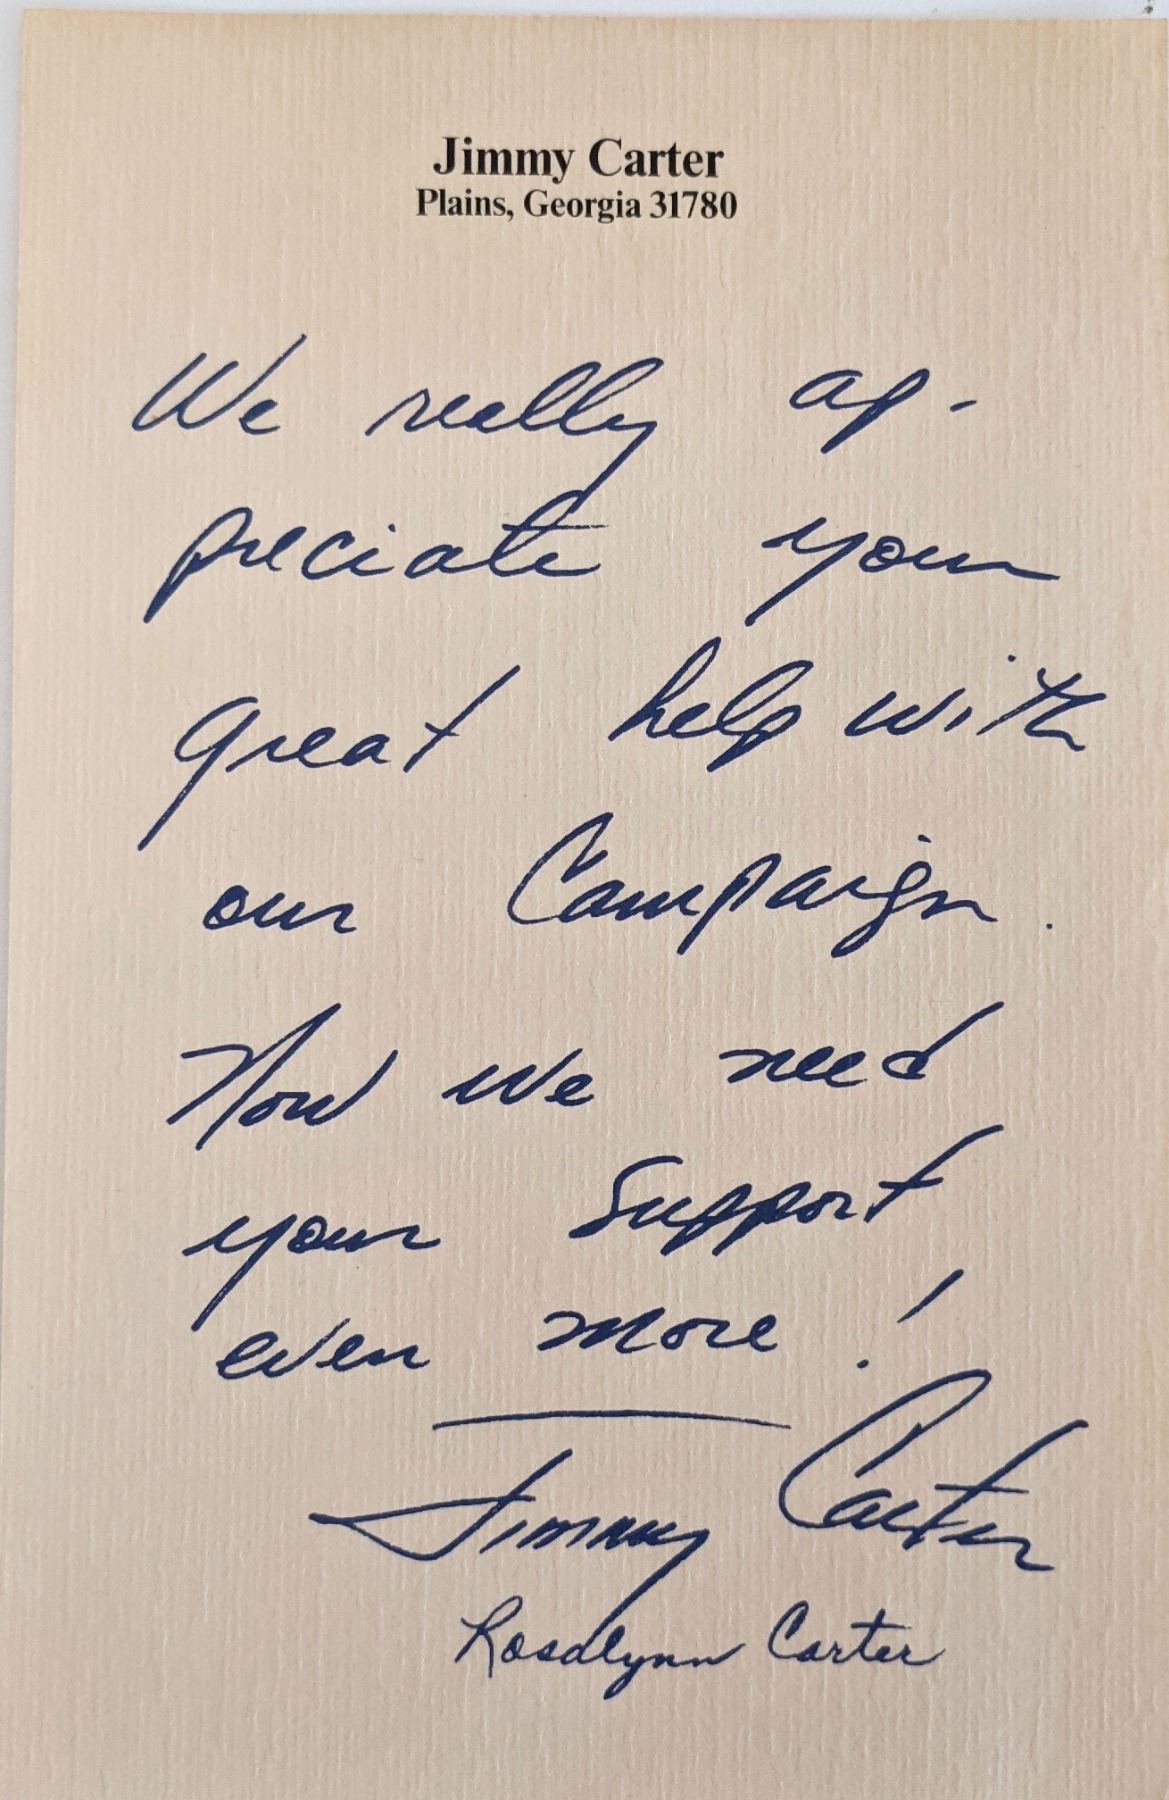 Jimmy Carter
Plains, Georgia 31780
We really ap-
preciate your
great help with
our Campaign.
Now we need
your support
even more!
Jimmy Carter
Rosalynn Carter